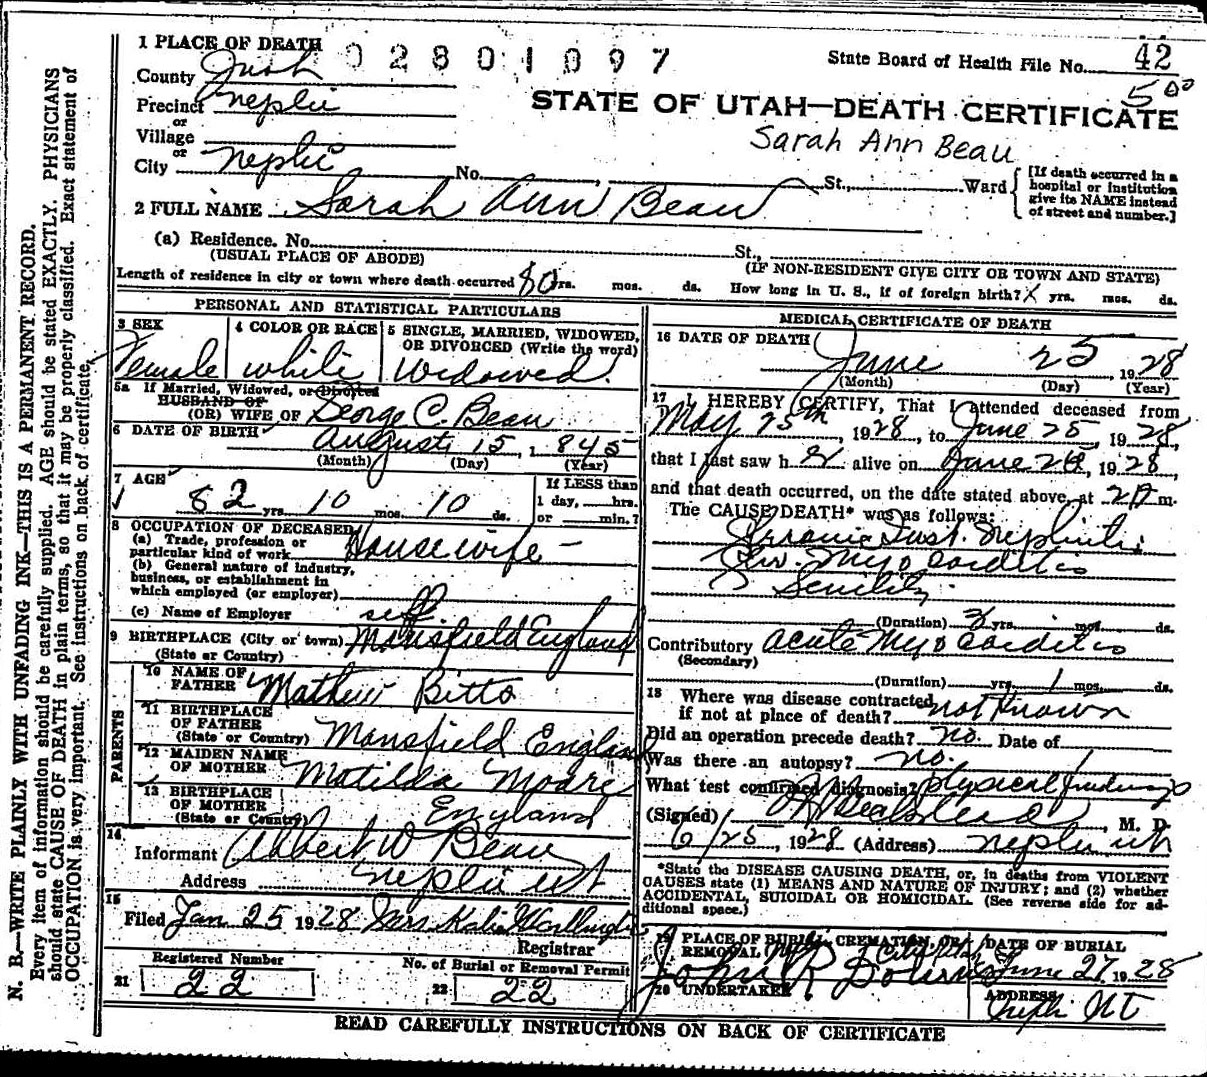 1 PLACE OF DEATH
0 2 8 0 1 0 9 7
State Board of Health File No. 42
County Juab
5 00
Precinct Nephi
STATE OF UTAH—DEATH CERTIFICATE
or
Village
Sarah Ann Beau
or
City Nephi No. St., Ward
[If death occurred in a
hospital or institution
give its NAME instead
of street and number.]
2 FULL NAME Sarah Ann Beau
(a) Residence. No. St.,
(USUAL PLACE OF ABODE)
(IF NON-RESIDENT GIVE CITY OR TOWN AND STATE)
Length of residence in city or town where death occurred 80 yrs. mos. ds. How long in U. S., if of foreign birth? yrs. mos. ds.
PERSONAL AND STATISTICAL PARTICULARS
3 SEX
Female
4 COLOR OR RACE
white
5 SINGLE, MARRIED, WIDOWED,
OR DIVORCED (Write the word)
Widowed.
5a If Married, Widowed, or Divorced
HUSBAND OF
(OR) WIFE OF George C. Beau
6 DATE OF BIRTH August 15, 1845
(Month) (Day) (Year)
7 AGE
82 yrs. 10 mos. 10 ds.
If LESS than
1 day, hrs.
or min.?
8 OCCUPATION OF DECEASED
(a) Trade, profession or
particular kind of work Housewife —
(b) General nature of industry,
business, or establishment in
which employed (or employer)
(c) Name of Employer self
9 BIRTHPLACE (City or town) Mansfield England
(State or Country)
PARENTS
10 NAME OF
FATHER Mathew Bitto
11 BIRTHPLACE
OF FATHER
(State or Country) Mansfield England
12 MAIDEN NAME
OF MOTHER Matilda Moore
13 BIRTHPLACE
OF MOTHER
(State or Country) England
14
Informant Albert W Beau
Address Nephi Ut
15
Filed Jan 25 1928 Mrs
Registrar
Registered Number
21 22
No. of Burial or Removal Permit
22 22
MEDICAL CERTIFICATE OF DEATH
16 DATE OF DEATH
June 25, 1928
(Month) (Day) (Year)
17 I HEREBY CERTIFY, That I attended deceased from
May 25th, 1928, to June 25, 1928,
that I last saw her alive on June, 1928,
and that death occurred, on the date stated above, at m.
The CAUSE DEATH* was as follows:
Chronic Inst. Nephritis
Chr. Myocarditis
Senility
(Duration) yrs. mos. ds.
Contributory Acute Myocarditis
(Secondary)
(Duration) yrs. 1 mos. ds.
18 Where was disease contracted
if not at place of death? not known
Did an operation precede death? no. Date of
Was there an autopsy? no.
What test confirmed diagnosis? physical findings
(Signed) , M. D.
6/25, 1928 (Address) Nephi Ut
*State the DISEASE CAUSING DEATH, or, in deaths from VIOLENT
CAUSES state (1) MEANS AND NATURE OF INJURY; and (2) whether
ACCIDENTAL, SUICIDAL OR HOMICIDAL. (See reverse side for ad-
ditional space.)
19 PLACE OF BURIAL, CREMATION, OR
REMOVAL
DATE OF BURIAL
June 27 1928
20 UNDERTAKER
John R
ADDRESS
Nephi UT
READ CAREFULLY INSTRUCTIONS ON BACK OF CERTIFICATE
N. B.—WRITE PLAINLY WITH UNFADING INK—THIS IS A PERMANENT RECORD.
Every item of information should be carefully supplied. AGE should be stated EXACTLY. PHYSICIANS
should state CAUSE OF DEATH in plain terms, so that it may be properly classified. Exact statement of
OCCUPATION is very important. See instructions on back of certificate.